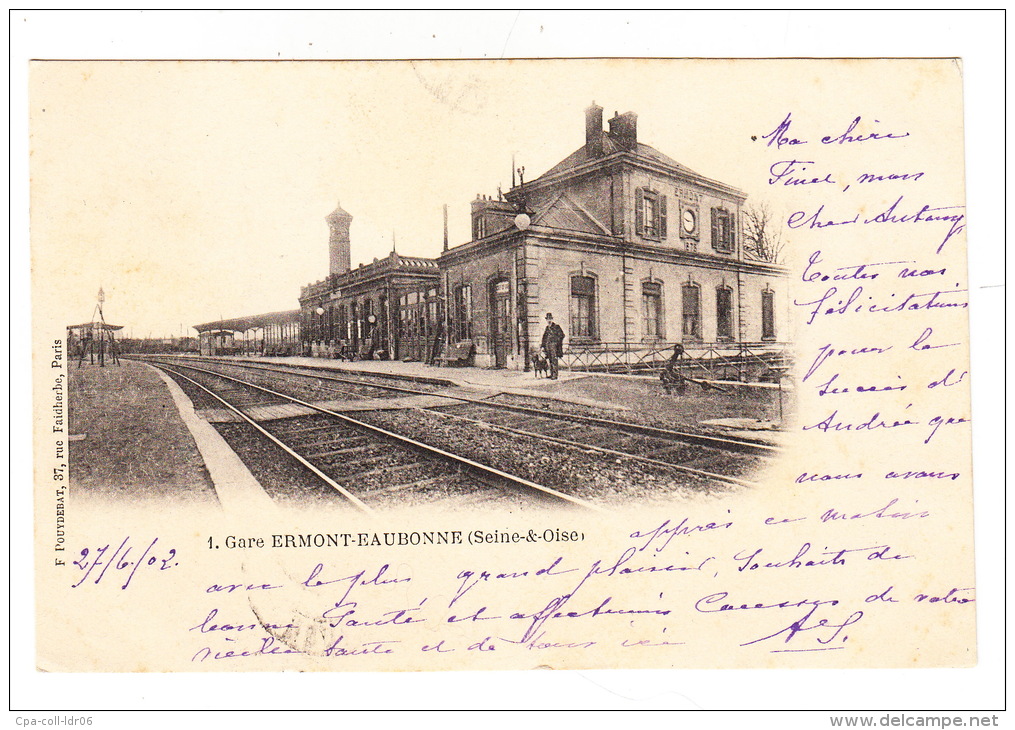 Ma chère
Final, mon
Cher Antony
Toutes nos
félicitations
pour le
succès d'
André que
nous avons
appris ce matin
avec le plus grand plaisir, Souhaits de
bonne Santé et affectueuses Caresses de votre
vieille tante et de tous ici
AS.
27/6/02.
1. Gare ERMONT-EAUBONNE (Seine-&-Oise)
F POUYDEBAT, 37, rue Faidherbe, Paris
ERMONT
Cpa-coll-ldr06
www.delcampe.net